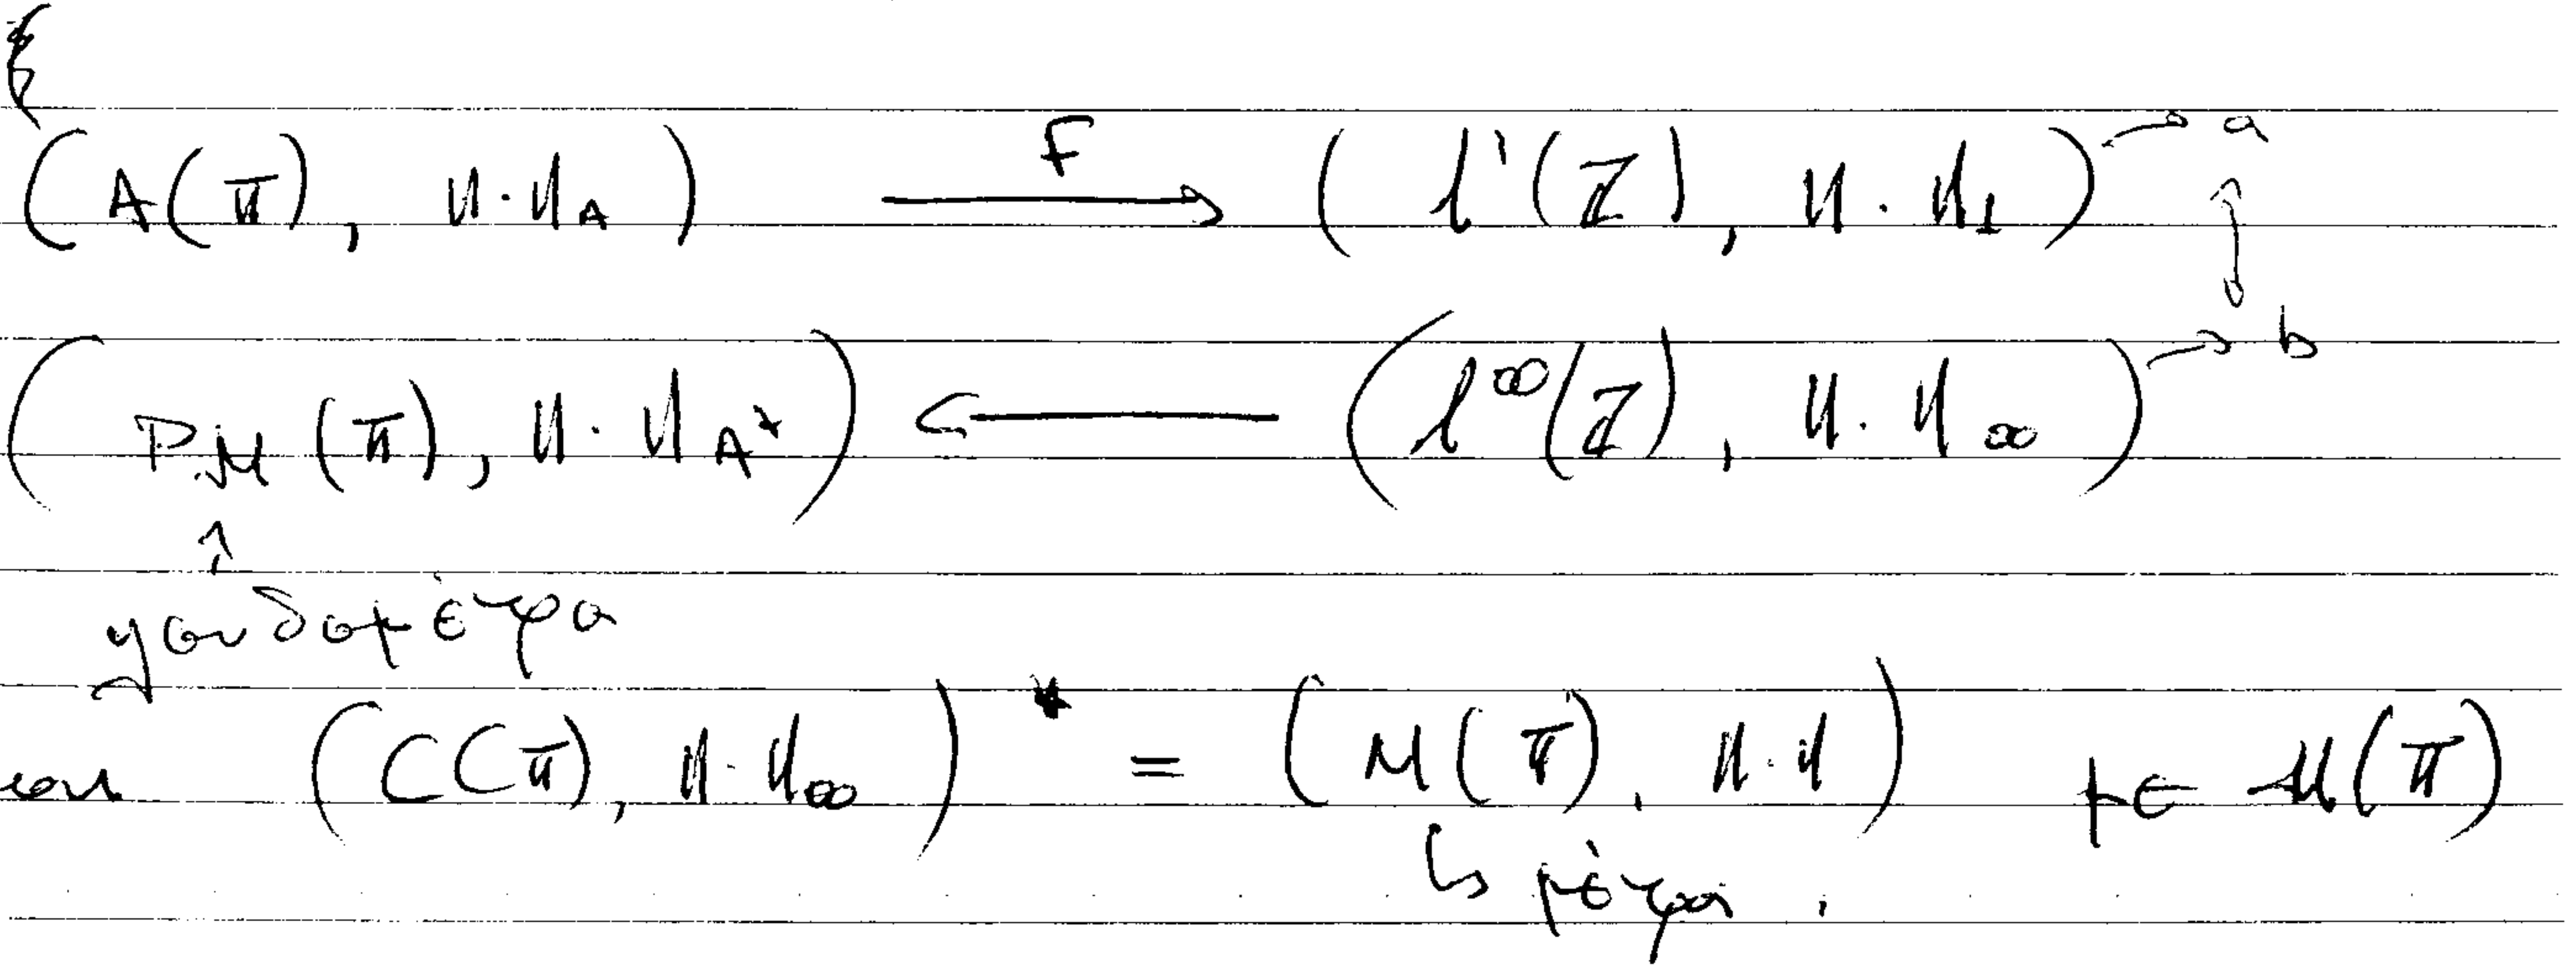 (A(𝕋), ‖·‖_A) —F→ (ℓ¹(ℤ), ‖·‖₁) → a
↕
(PM(𝕋), ‖·‖_{A*}) ← (ℓ^∞(ℤ), ‖·‖_∞) → b
↑
ψευδομέτρα
και (C(𝕋), ‖·‖_∞)* = (M(𝕋), ‖·‖) μ ∈ M(𝕋)
↳ μέτρα.